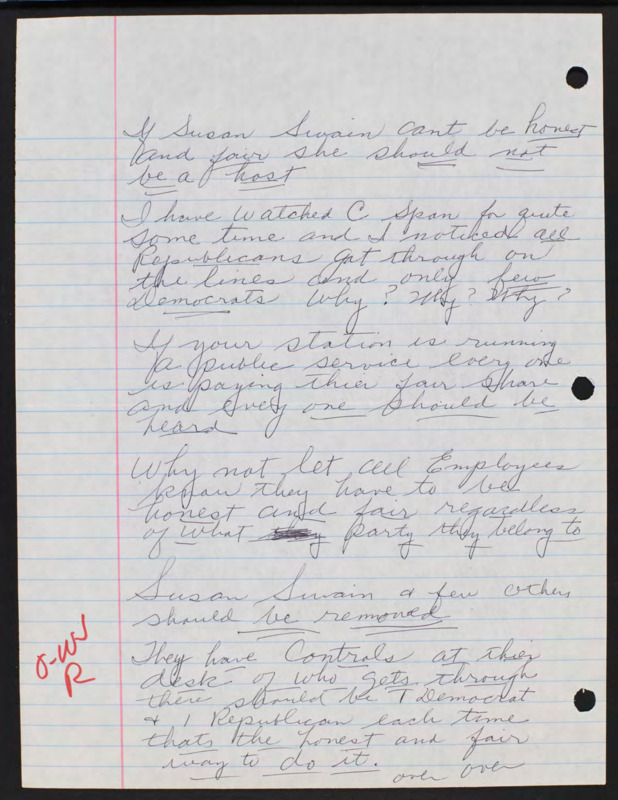 If Susan Swain cant be honest
and fair she should not
be a host
I have watched C Span for quite
some time and I noticed all
Republicans get through on
the lines and only few
Democrats Why? Why? Why?
If your station is running
a public service every one
is paying thier fair share
and every one should be
heard
Why not let all Employees
know they have to be
honest and fair regardless
of what party they belong to
Susan Swain & few others
should be removed
They have Controls at thier
desk of who gets through
there should be 1 Democrat
& 1 Republican each time
thats the honest and fair
way to do it.
over over
R